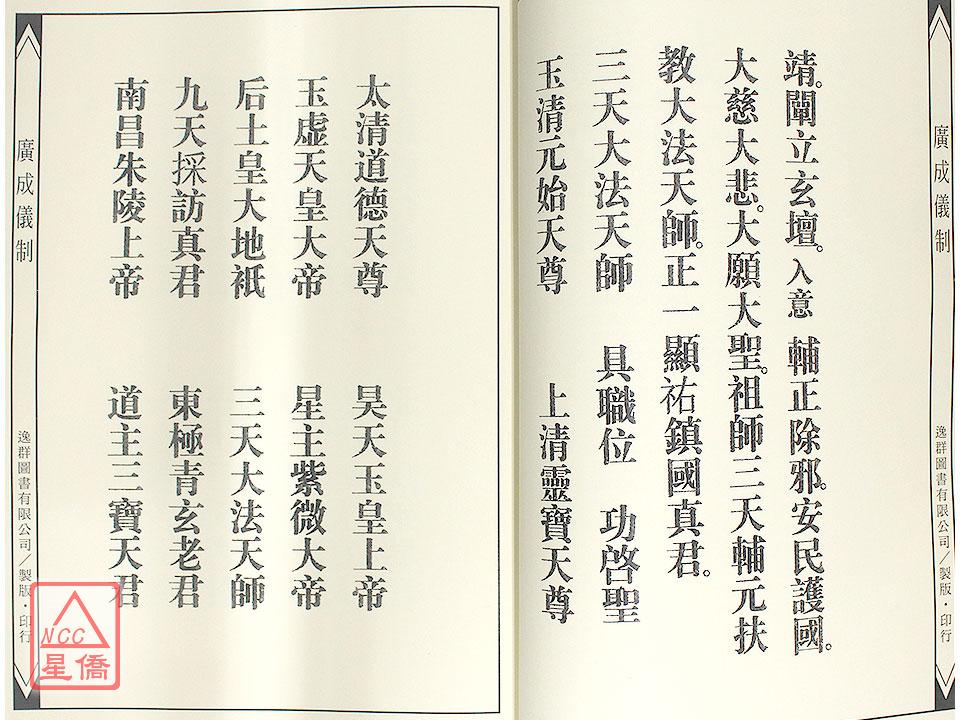 廣成儀制
逸群圖書有限公司／製版・印行
靖。闡立玄壇。入意 輔正除邪。安民護國。
大慈大悲。大願大聖。祖師三天輔元扶
教大法天師。正一顯祐鎮國真君。
三天大法天師 具職位 功啓聖
玉清元始天尊 上清靈寶天尊
太清道德天尊 昊天玉皇上帝
玉虛天皇大帝 星主紫微大帝
后土皇大地祇 三天大法天師
九天採訪真君 東極青玄老君
南昌朱陵上帝 道主三寶天君
廣成儀制
逸群圖書有限公司／製版・印行
NCC
星僑